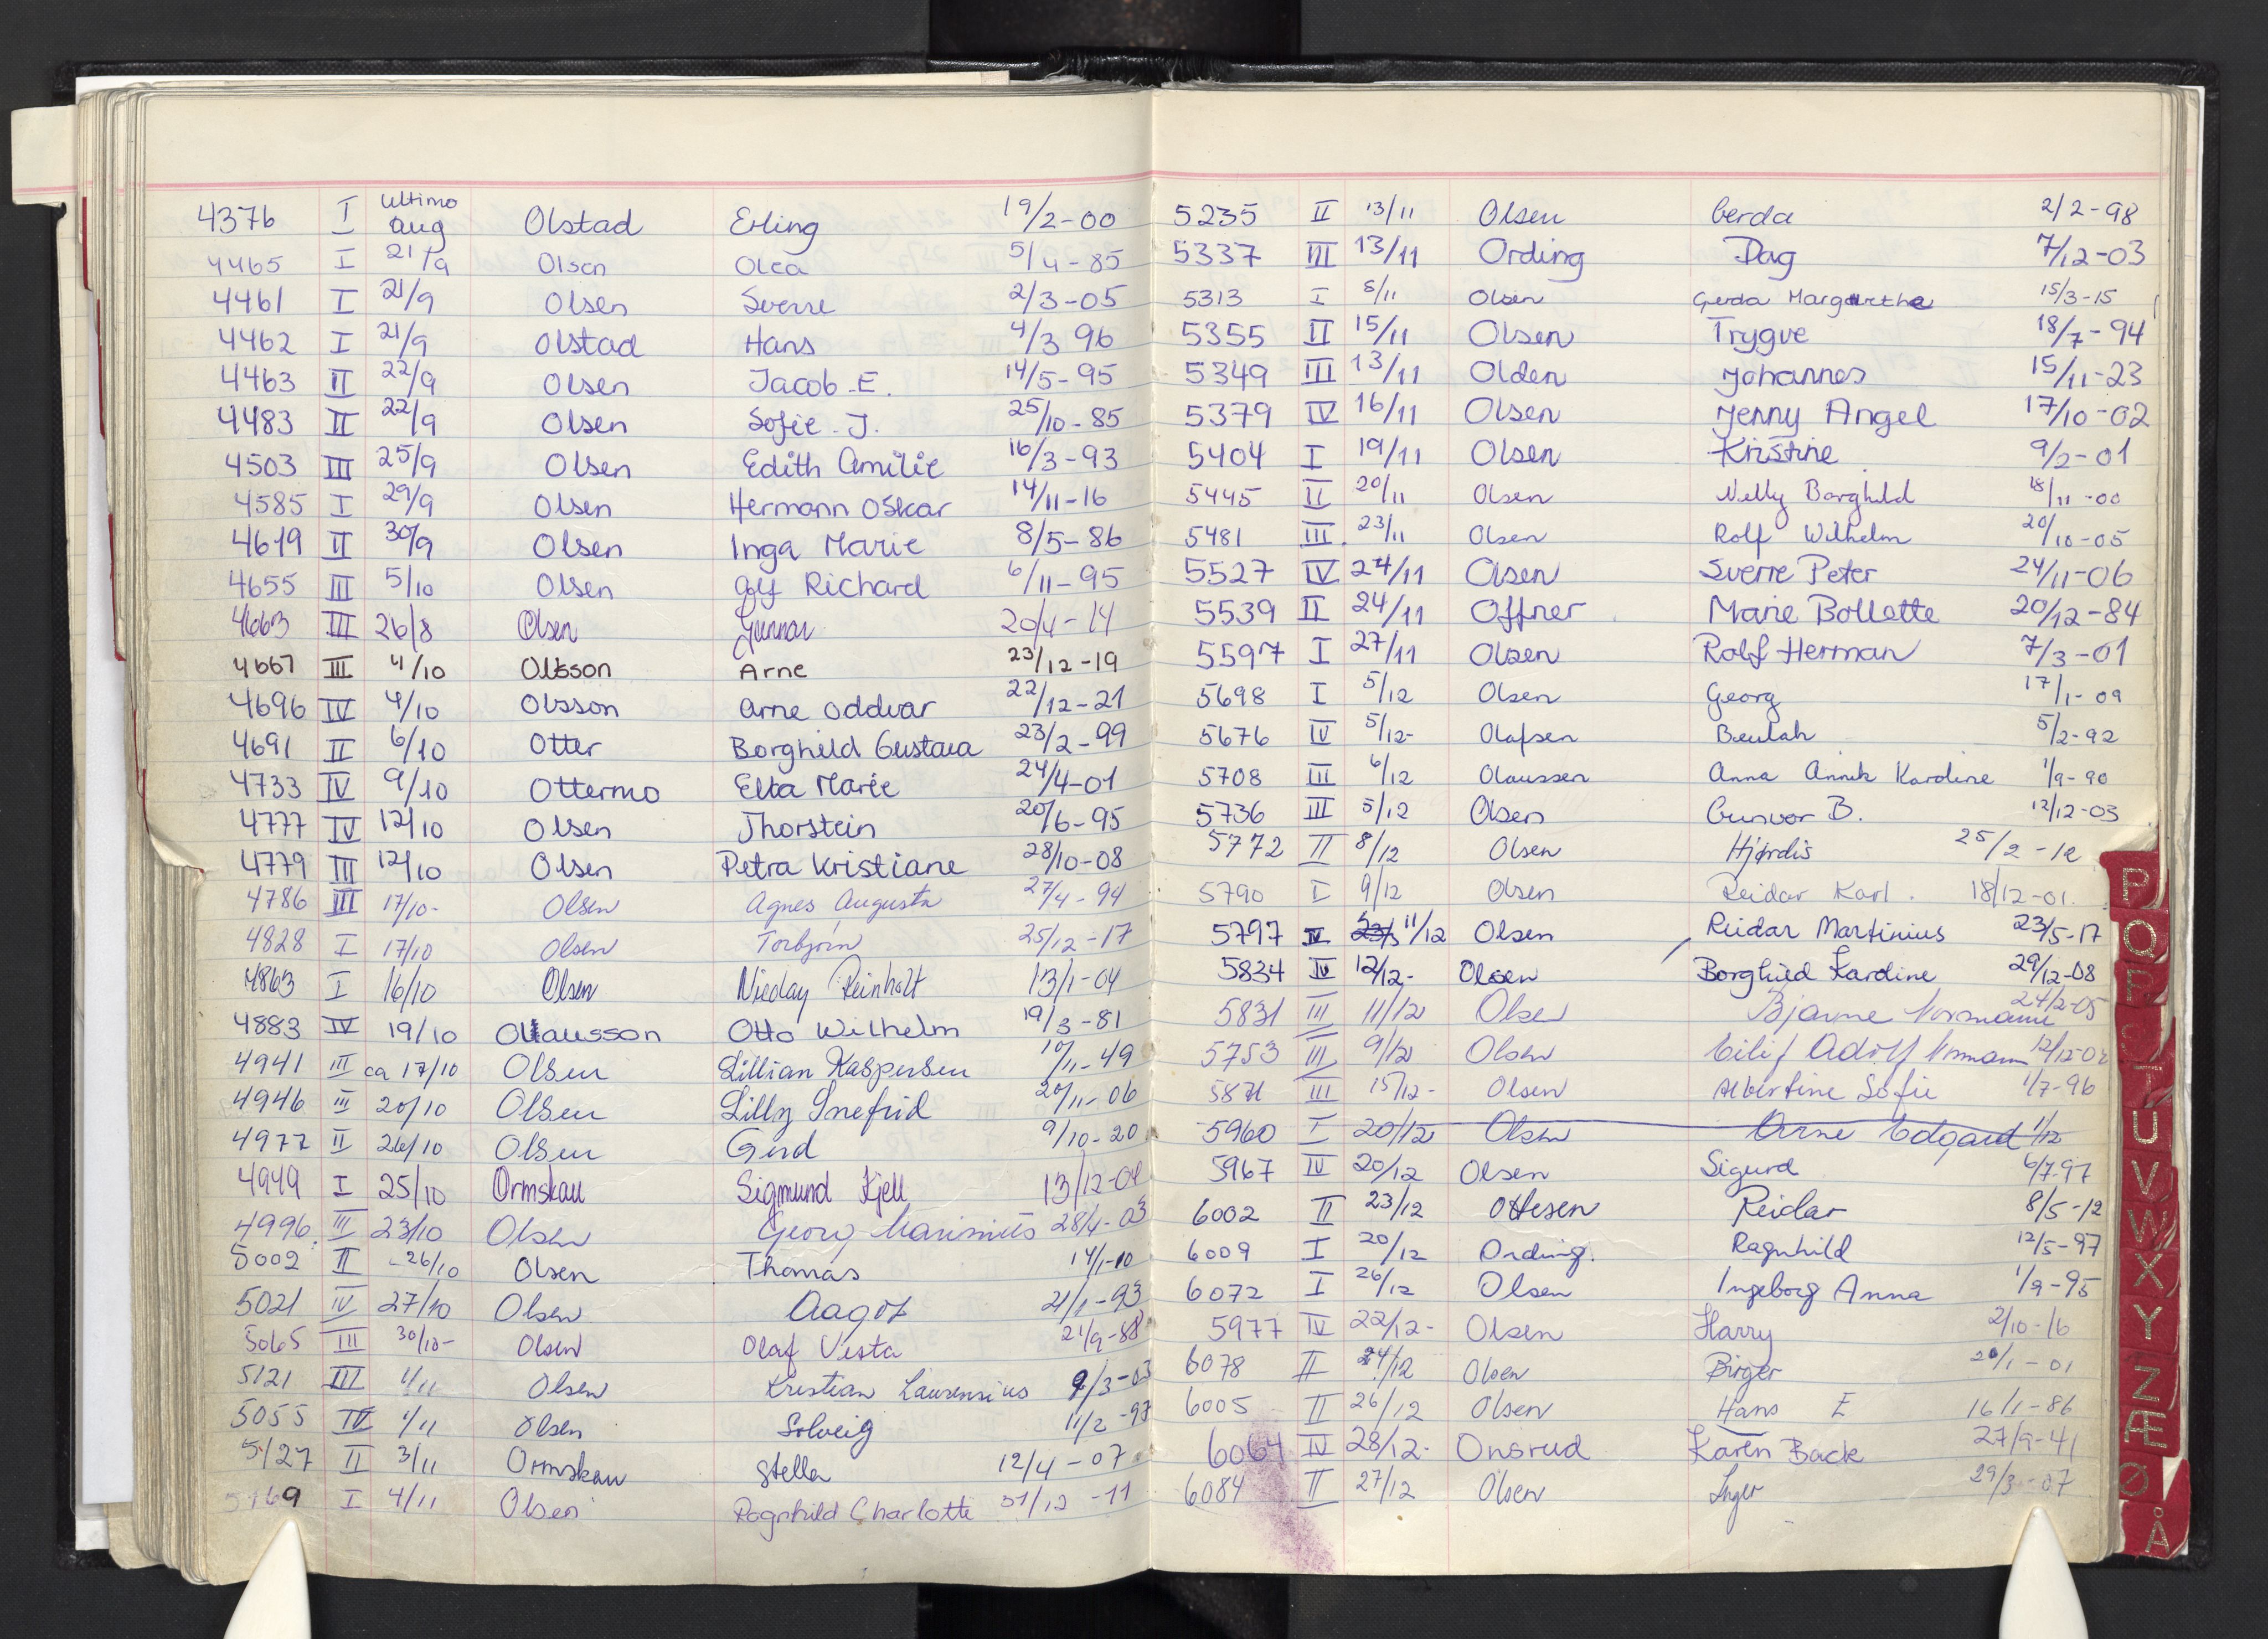 4376 I ultimo aug Olstad Erling 19/2-00
4465 I 21/9 Olsen Olea 5/4-85
4461 I 21/9 Olsen Sverre 2/3-05
4462 I 21/9 Olstad Hans 4/3 96
4463 II 22/9 Olsen Jacob E. 14/5-95
4483 II 22/9 Olsen Sofie J. 25/10-85
4503 III 25/9 Olsen Edith Amilie 16/3-93
4585 I 29/9 Olsen Hermann Oskar 14/11-16
4619 II 30/9 Olsen Inga Marie 8/5-86
4655 III 5/10 Olsen Richard 6/11-95
4663 III 26/8 Olsen Gunnar 20/4-14
4667 III 4/10 Olsson Arne 23/12-19
4696 IV 4/10 Olsson Arne Oddvar 22/12-21
4691 II 6/10 Otter Borghild Gustava 23/2-99
4733 IV 9/10 Ottermo Elba Marie 24/4-01
4777 IV 12/10 Olsen Thorstein 20/6-95
4779 III 12/10 Olsen Petra Kristiane 28/10-08
4786 III 17/10- Olsen Agnes Augusta 27/4-94
4828 I 17/10 Olsen Torbjørn 25/12-17
4863 I 16/10 Olsen Nicolay Reinholt 13/1-04
4883 IV 19/10 Olausson Otto Wilhelm 19/3-81
4941 III ca 17/10 Olsen Lillian Kaspersen 10/11-49
4946 III 20/10 Olsen Lilly Snefrid 20/11-06
4977 II 26/10 Olsen Gerd 9/10-20
4949 I 25/10 Ormskau Sigmund Kjell 13/12-04
4996. III 23/10 Olsen Georg Marinius 28/4-03
5002 II 26/10 Olsen Thomas 14/1-10
5021 IV 27/10 Olsen Aagot 21/1-93
5065 III 30/10- Olsen Olaf Vista 21/9-88
5121 III 4/11 Olsen Kristian Laurensius 9/3-03
5055 IV 1/11 Olsen Solveig 11/2-97
5127 II 3/11 Ormskau Stella 12/4-07
5169 I 4/11 Olsen Ragnhild Charlotte 31/12-11
5235 II 13/11 Olsen Gerda 2/2-98
5337 III 13/11 Ording Dag 7/12-03
5313 I 5/11 Olsen Gerda Margarethe 15/3-15
5355 II 15/11 Olsen Trygve 18/7-94
5349 III 13/11 Olden Johannes 15/11-23
5379 IV 16/11 Olsen Jenny Angel 17/10-02
5404 I 19/11 Olsen Kristine 9/2-01
5445 II 20/11 Olsen Nelly Borghild 18/11-00
5481 III 23/11 Olsen Rolf Wilhelm 20/10-05
5527 IV 24/11 Olsen Sverre Peter 24/11-06
5539 II 24/11 Offner Marie Bollette 20/12-84
5597 I 27/11 Olsen Rolf Herman 7/3-01
5698 I 5/12 Olsen Georg 17/1-09
5676 IV 5/12- Olafsen Beulah 5/2-92
5708 III 6/12 Olaussen Anna Annik Kardine 1/9-90
5736 III 5/12 Olsen Gunvor B. 12/12-03
5772 II 8/12 Olsen Hjørdis 25/2-12
5790 I 9/12 Olsen Reidar Karl. 18/12-01.
5797 IV 11/12 Olsen Reidar Martinius 23/5-17
5834 IV 12/12- Olsen Borghild Kardine 29/12-08
5831 III 11/12 Olsen Bjarne Normann 24/2-05
5753 III 9/12 Olsen Eilif Adolf 12/12-02
5871 III 15/12- Olsen Albertine Sofie 1/7-96
5960 I 20/12 Olsen Arne Edgard 1/12
5967 IV 20/12 Olsen Sigurd 6/7-97
6002 II 23/12 Ottesen Reidar 8/5-12
6009 I 20/12 Ording. Ragnhild 12/5-97
6072 I 26/12 Olsen Ingeborg Anna 1/9-95
5977 IV 22/12- Olsen Harry 2/10-16
6078 II 24/12 Olsen Birger 20/1-01
6005 II 26/12 Olsen Hans E 16/1-86
6064 IV 28/12- Onsrud Karen Back 27/9-41
6084 II 27/12 Olsen Inger 29/3-07
P
Q
R
T
U
V
W
X
Y
Z
Æ
Ø
Å